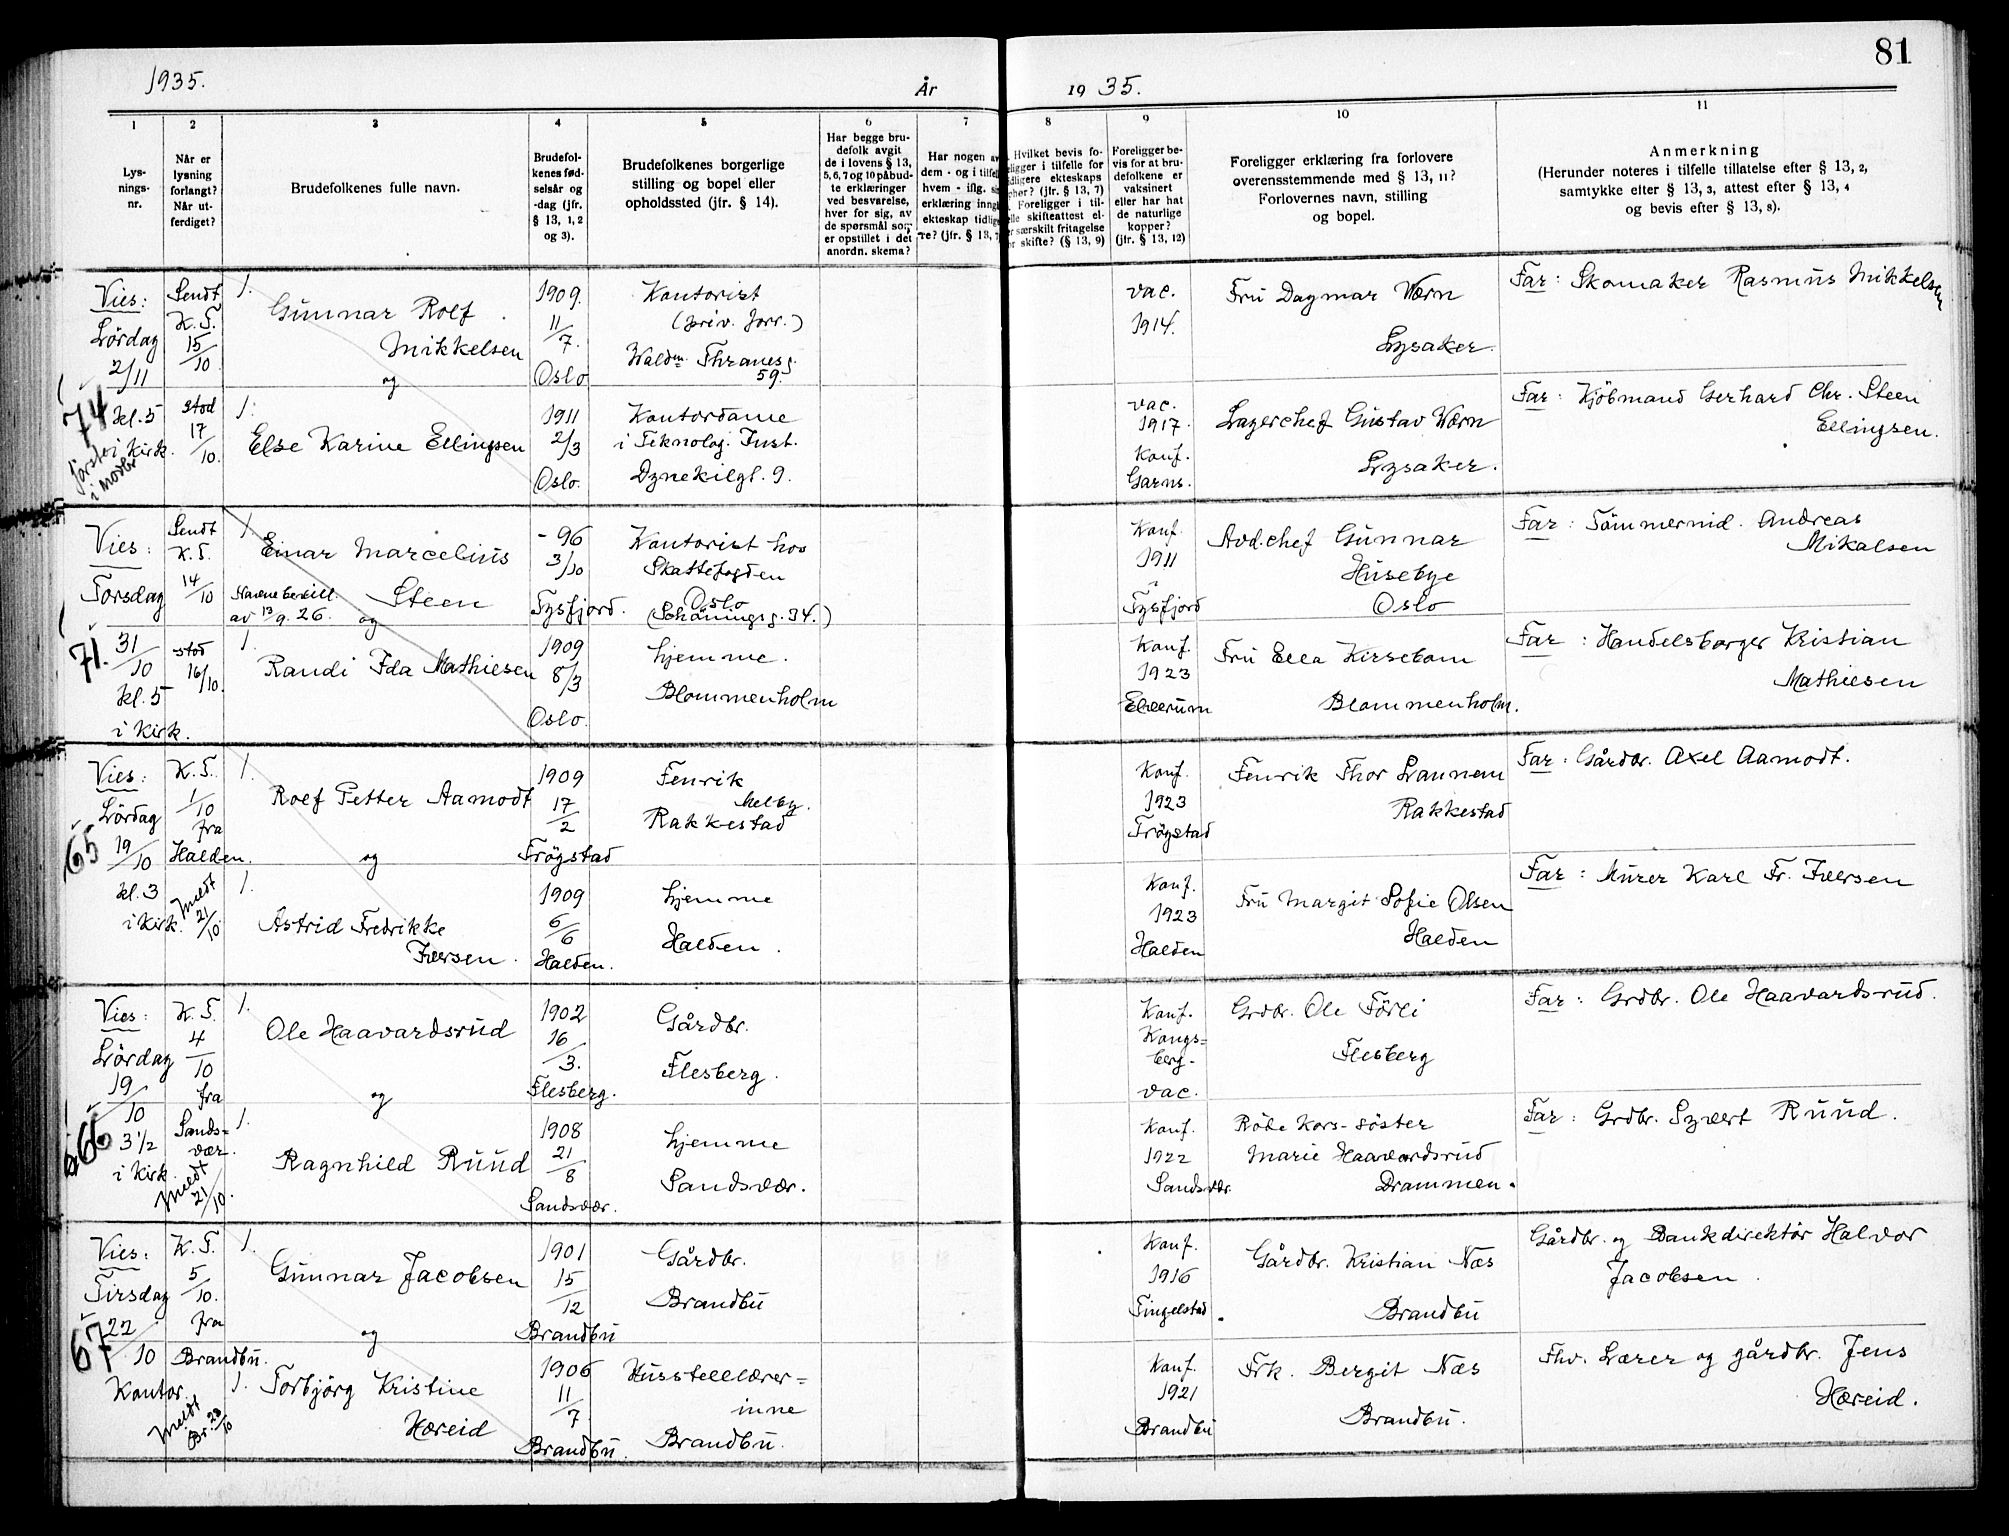 81
1935.
År
19 35.
1
2
3
4
5
6
7
8
9
10
11
Lys-
nings-
nr.
Når er
lysning
forlangt?
Når ut-
ferdiget?
Brudefolkenes fulle navn.
Brudefol-
kenes fød-
selsår og
-dag (jfr.
§ 13, 1, 2
og 3).
Brudefolkenes borgerlige
stilling og bopel eller
opholdssted (jfr. § 14).
Har begge bru-
defolk avgit
de i lovens § 13,
5, 6, 7 og 10 påbud-
te erklæringer
ved besvarelse,
hver for sig, av
de spørsmål som
er opstillet i det
anordn. skema?
Har nogen av
dem - og i tilfelle
hvem - iflg. si
erklæring inng
ekteskap tidlige
re? (jfr. § 13, 7
Hvilket bevis fo-
religger i tilfelle for
tidligere ekteskaps
ophør? (jfr. § 13, 7)
Foreligger i til-
felle skifteattest el-
ler særskilt fritagelse
for skifte? (§ 13, 9)
Foreligger be-
vis for at bru-
defolkene er
vaksinert
eller har hat
de naturlige
kopper?
(jfr. § 13, 12)
Foreligger erklæring fra forlovere
overensstemmende med § 13, 11?
Forlovernes navn, stilling
og bopel.
Anmerkning
(Herunder noteres i tilfelle tillatelse efter § 13, 2,
samtykke efter § 13, 3, attest efter § 13, 4
og bevis efter § 13, 8).
Vies:
Lördag
2/11
kl. 5
i Kirk.
74
Sendt
K.T.
15/10
stod
17/10.
1.
Gunnar Rolf
Mikkelsen
og
1909.
11/7.
Oslo
Kontorist
Waldm. Thranesg.
59.
vac.
1914.
Fru Dagmar Wærn
Lysaker.
Far: Skomaker Rasmus Mikkelsen
1.
Else Karine Ellingsen
1911
2/3
Oslo.
Kontordame
i Teknolog. Inst.
Dynekilgt. 9.
vac.
1917.
Konf.
Garns.
Lagerchef Gustav Wærn
Lysaker.
Far: Kjöbmand Gerhard Chr. Steen
Ellingsen.
Vies:
Torsdag
31/10
kl. 5
i Kirk.
71.
Sendt
K.T.
14/10
stod
16/10.
1.
Einar Marcelius
Steen
Navnebevill.
av 13/9.26.
og
-96
3/10
Tysfjord.
Kontorist hos
Skattefogden
Oslo
(Schöningsg. 34.)
Konf.
1911
i
Tysfjord
Avd.chef Gunnar
Husebye
Oslo
Far: Tömmermd. Andreas
Mikalsen
1.
Randi Ida Mathiesen
1909
8/3
Oslo.
hjemme.
Blommenholm
Konf.
1923
Elverum
Fru Ella Kirsebom
Blommenholm.
Far: Handelsborger Kristian
Mathiesen
Vies:
Lördag
19/10
kl. 3
i Kirk.
65
K.T.
1/10
fra
Halden.
Meldt
21/10
1.
Rolf Petter Aamodt
og
1909
17/2
Trögstad
Fenrik
Melby.
Rakkestad
Konf.
1923
Trögstad
Fenrik Thor Lannem
Rakkestad
Far: Gårdbr. Axel Aamodt.
1.
Astrid Fredrikke
Iversen.
1909
6/6
Halden.
hjemme
Halden.
Konf.
1923
Halden
Fru Margit Sofie Olsen
Halden
Far: Murer Karl Fr. Iversen
Vies:
Lördag
19/10
3 1/2
i Kirk.
66
K.T.
4/10
fra
Sands-
vær.
Meldt
21/10.
1.
Ole Haavardsrud
og
1902
16/3.
Flesberg.
Gårdbr.
Flesberg.
Konf.
Kongs-
berg.
vac.
Grdbr. Ole Förli
Flesberg
Far: Grdbr. Ole Haavardsrud.
1.
Ragnhild Ruud
1908
21/8
Sandsvær.
hjemme
Sandsvær.
Konf.
1922
Sandsvær.
Röde Kors-söster
Marie Haavardsrud
Drammen.
Far: Grdbr. Syvert Ruud.
Vies:
Tirsdag
22/10
Kontor.
67
K.T.
5/10.
fra
Brandbu.
Meldt
Br. 23/10
1.
Gunnar Jacobsen
og
1901
15/12
Brandbu
Gårdbr.
Brandbu
Konf.
1916
Tingelstad.
Gårdbr. Kristian Næs
Brandbu
Gårdbr. og Bankdirektör Halvor
Jacobsen.
1.
Torbjörg Kristine
Hæreid
1906
11/7
Brandbu.
Husstelllærer=
inne
Brandbu.
Konf.
1921
Brandbu
Frk. Bergit Næs
Brandbu.
Fhv. Lærer og gårdbr. Jens
Hæreid.